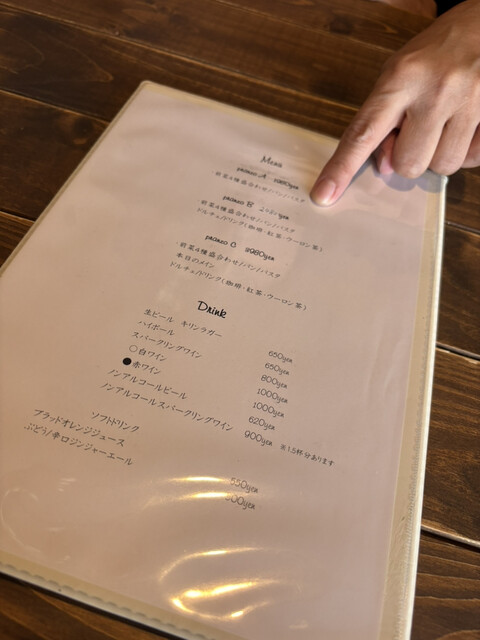 Menu
pranzo A 1980yen
前菜4種盛合わせ/パン/パスタ
pranzo B
前菜4種盛合わせ/パン/パスタ
ドルチェ/ドリンク(珈琲・紅茶・ウーロン茶)
pranzo C 2980yen
前菜4種盛合わせ/パン/パスタ
本日のメイン
ドルチェ/ドリンク(珈琲・紅茶・ウーロン茶)
Drink
生ビール キリンラガー 650yen
ハイボール 650yen
スパークリングワイン 800yen
○白ワイン 1000yen
●赤ワイン 1000yen
ノンアルコールビール 620yen
ノンアルコールスパークリングワイン 900yen ※1.5杯分あります
ソフトドリンク
ブラッドオレンジジュース 550yen
ぶどう/辛口ジンジャーエール 500yen